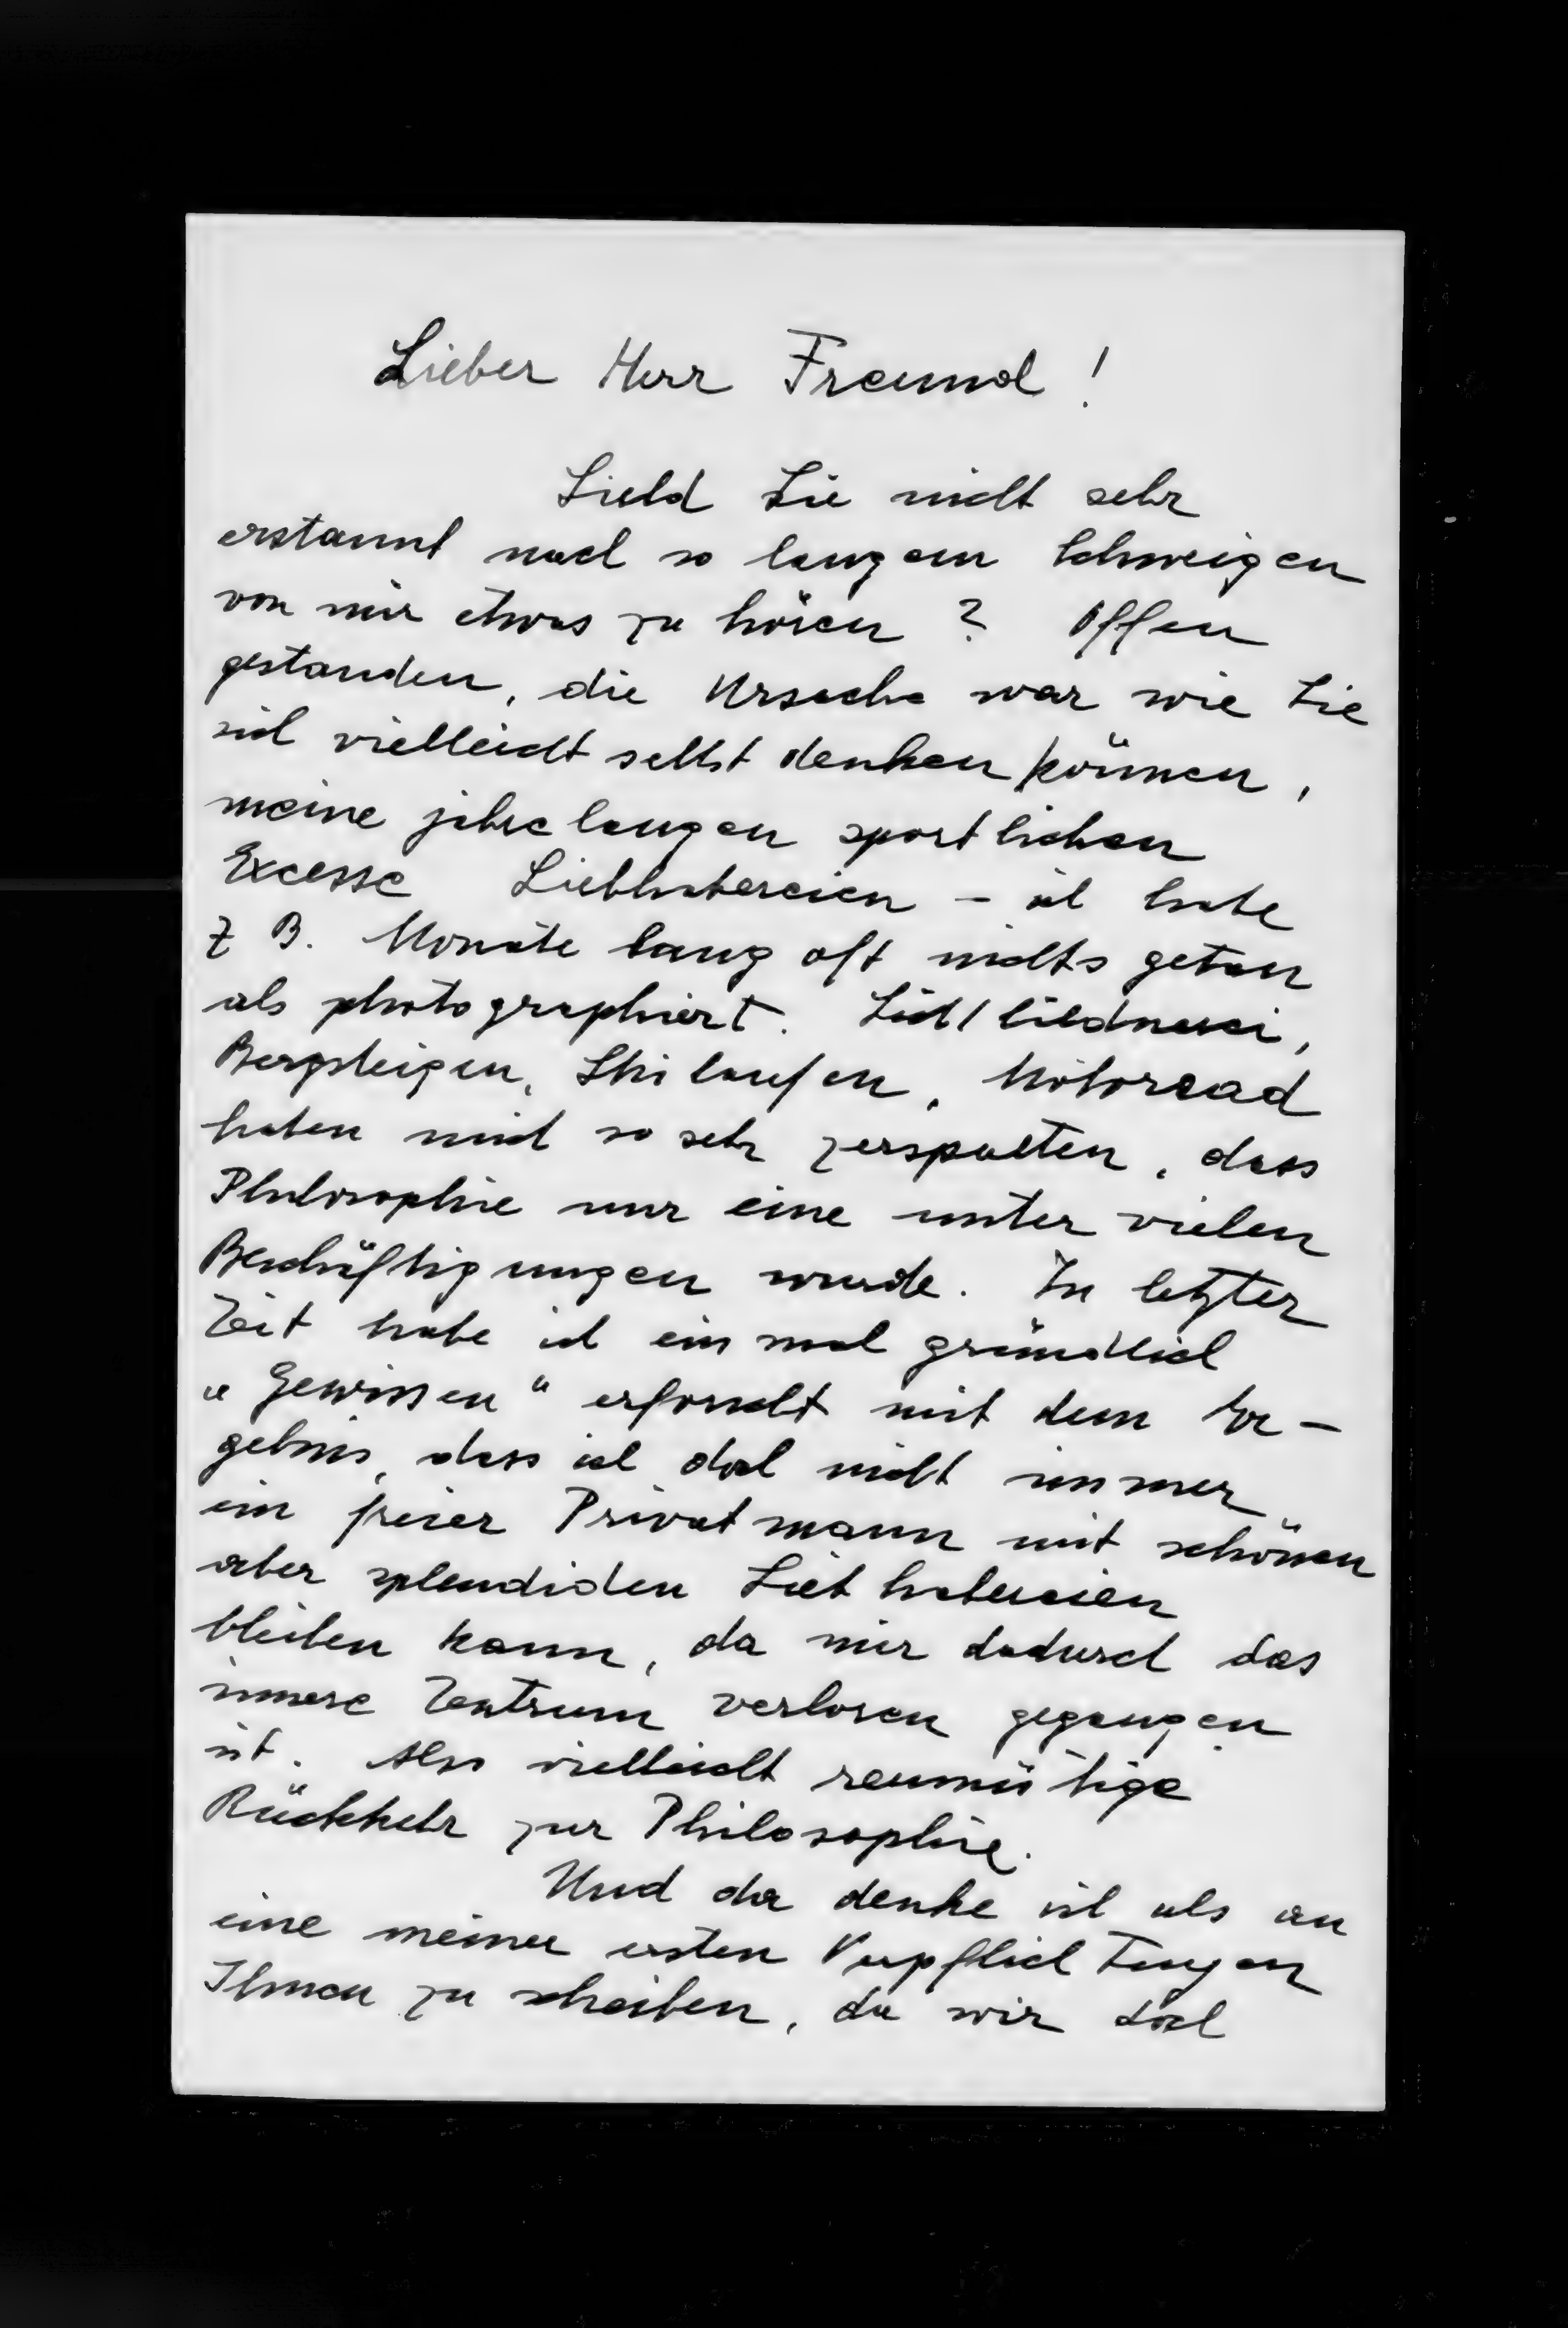 Lieber Herr Freund!
Sind Sie nicht sehr
erstaunt nach so langem Schweigen
von mir etwas zu hören? Offen
gestanden, die Ursache war wie Sie
sich vielleicht selbst denken können,
meine jahrelangen sportlichen
Excesse Liebhabereien - ich habe
z B. Monate lang oft nichts getan
als photographiert. Lichtbildnerei,
Bergsteigen, Skilaufen, Motorrad
haben mich so sehr zerspalten, dass
Philosophie nur eine unter vielen
Beschäftigungen wurde. In letzter
Zeit habe ich einmal gründlich
"Gewissen" erforscht mit dem Er-
gebnis, dass ich doch nicht immer
ein freier Privatmann mit schönen
aber splendiden Liebhabereien
bleiben kann, da mir dadurch das
innere Zentrum verloren gegangen
ist. Also vielleicht reumütige
Rückkehr zur Philosophie.
Und da denke ich als an
eine meiner ersten Verpflichtungen
Ihnen zu schreiben, da wir doch